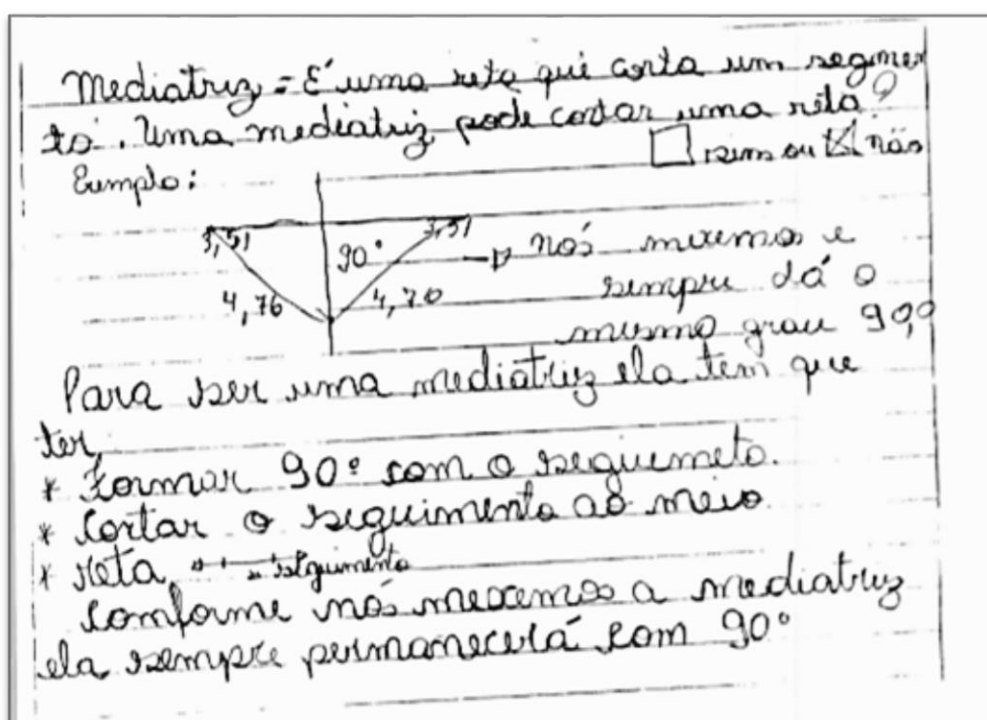 Mediatriz = É uma reta que corta um segmen
to. Uma mediatriz pode cortar uma reta?
sim ou não
Exemplo:
3,51 3,51
90° nós mexemos e
4,76 4,70 sempre dá o
mesmo grau 90°
Para ser uma mediatriz ela tem que
ter,
* Formar 90° com o seguimeto.
* Cortar o seguimento ao meio
* reta, " " " seguimento
Conforme nós mexemos a mediatriz
ela sempre permanecerá com 90°